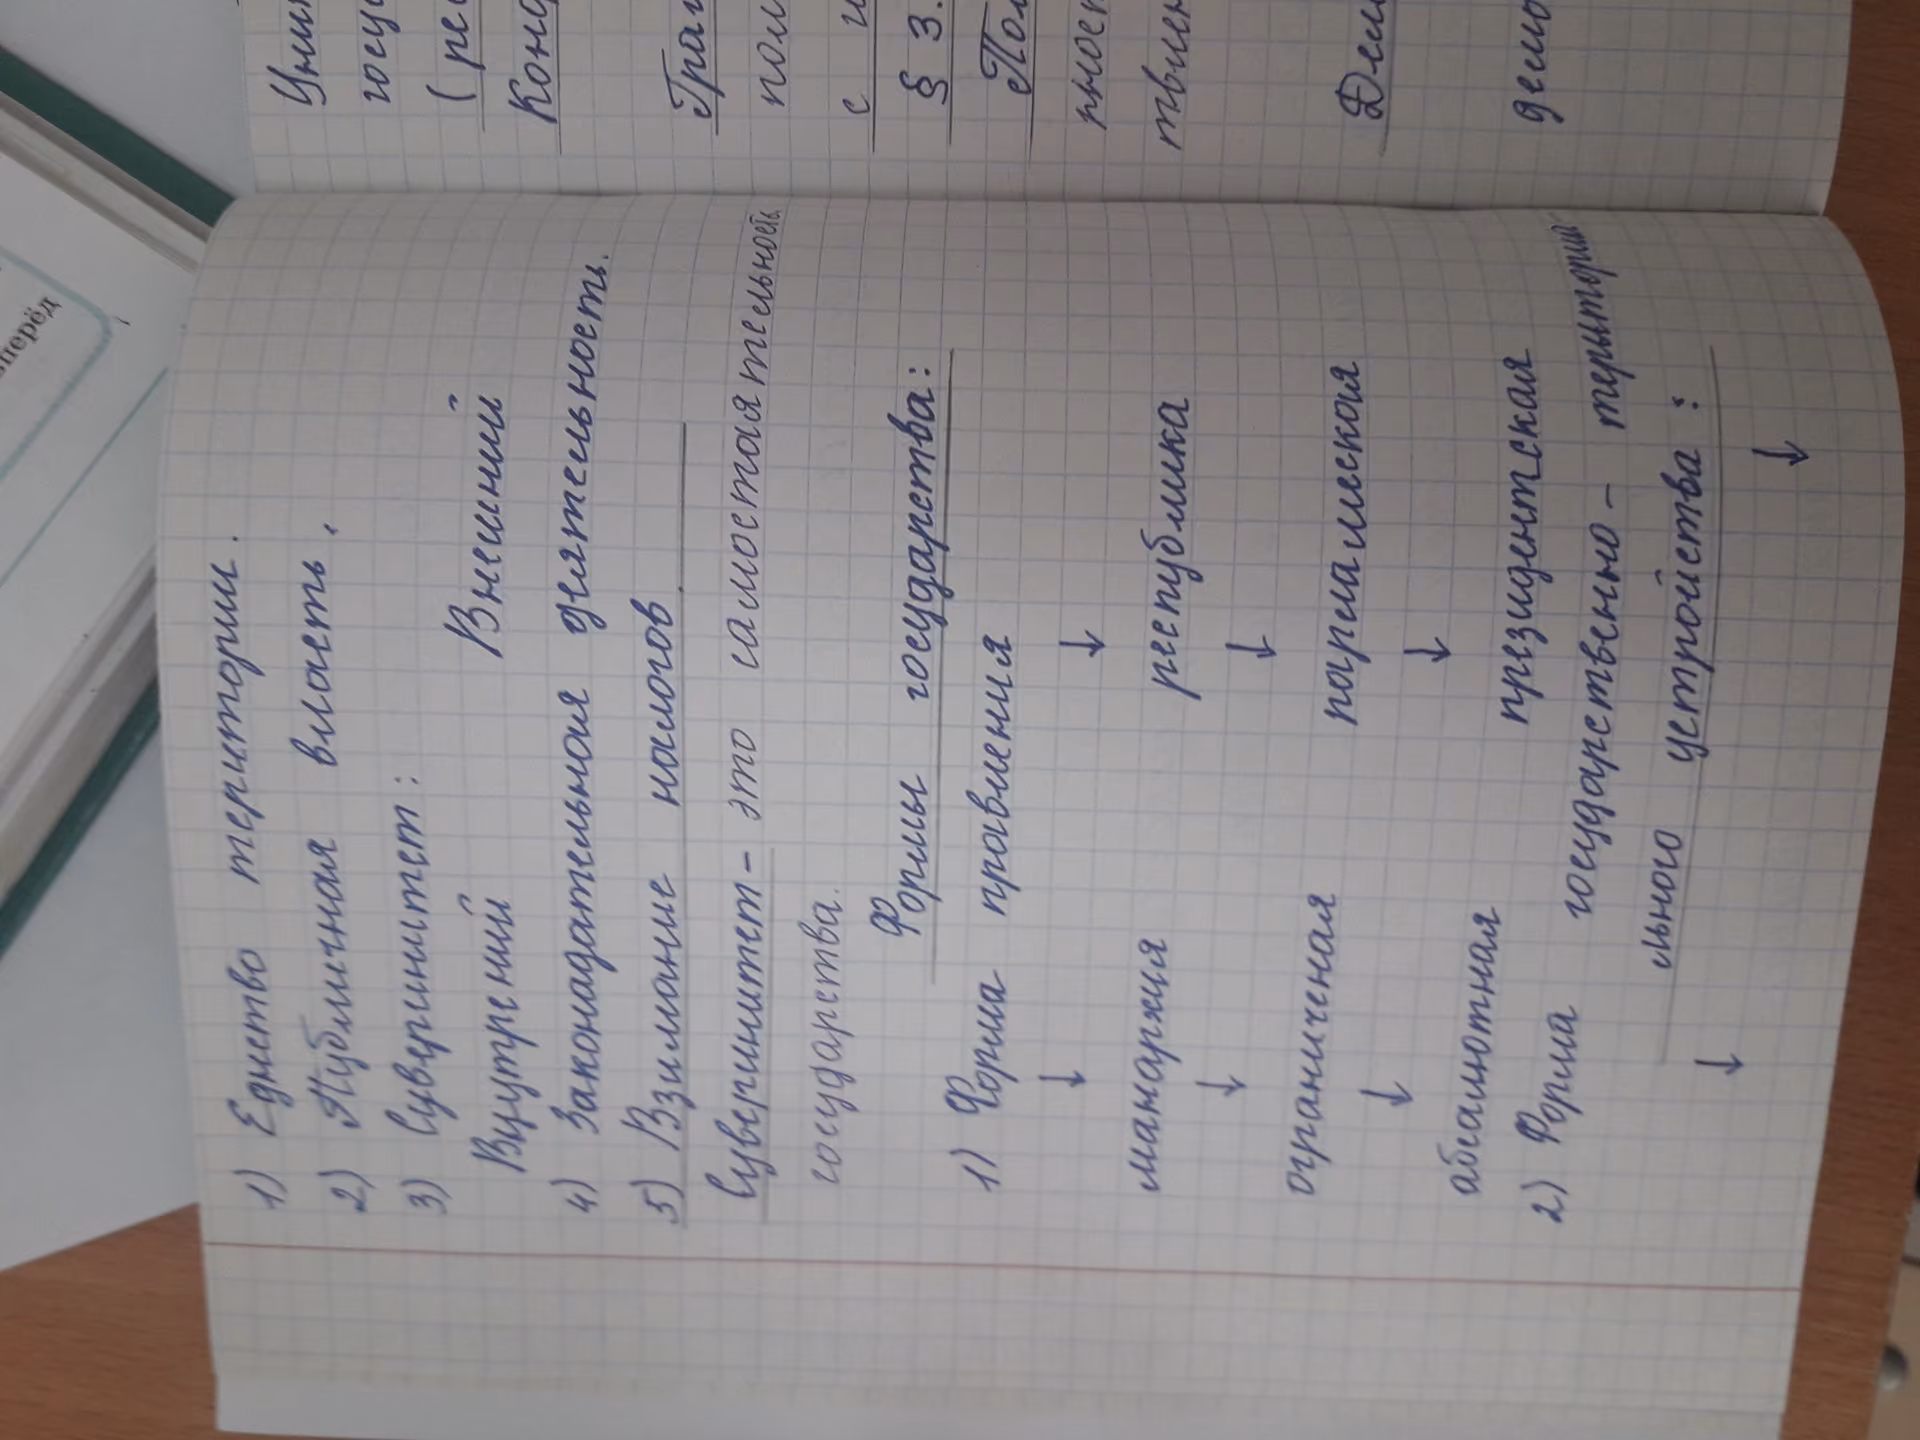 1) Еднство териториии.
2) Публичная власть.
3) Суверинитет:
Внутрений Внешний
4) Законадательная деятельность.
5) Взимание налогов.
Суверинитет- это самостоятельность
государства.
Формы государства:
1) Форма правления
↓ ↓
манархия республика
↓ ↓
ограниченая парламеская
↓ ↓
абсалютная президентская
2) Форма государственно- територии
льного устройства:
↓ ↓
Унит
госу
(рес
Конф
Граж
пол
с и
§ 3.
Пол
ност
твлен
Дем
демо
перёд